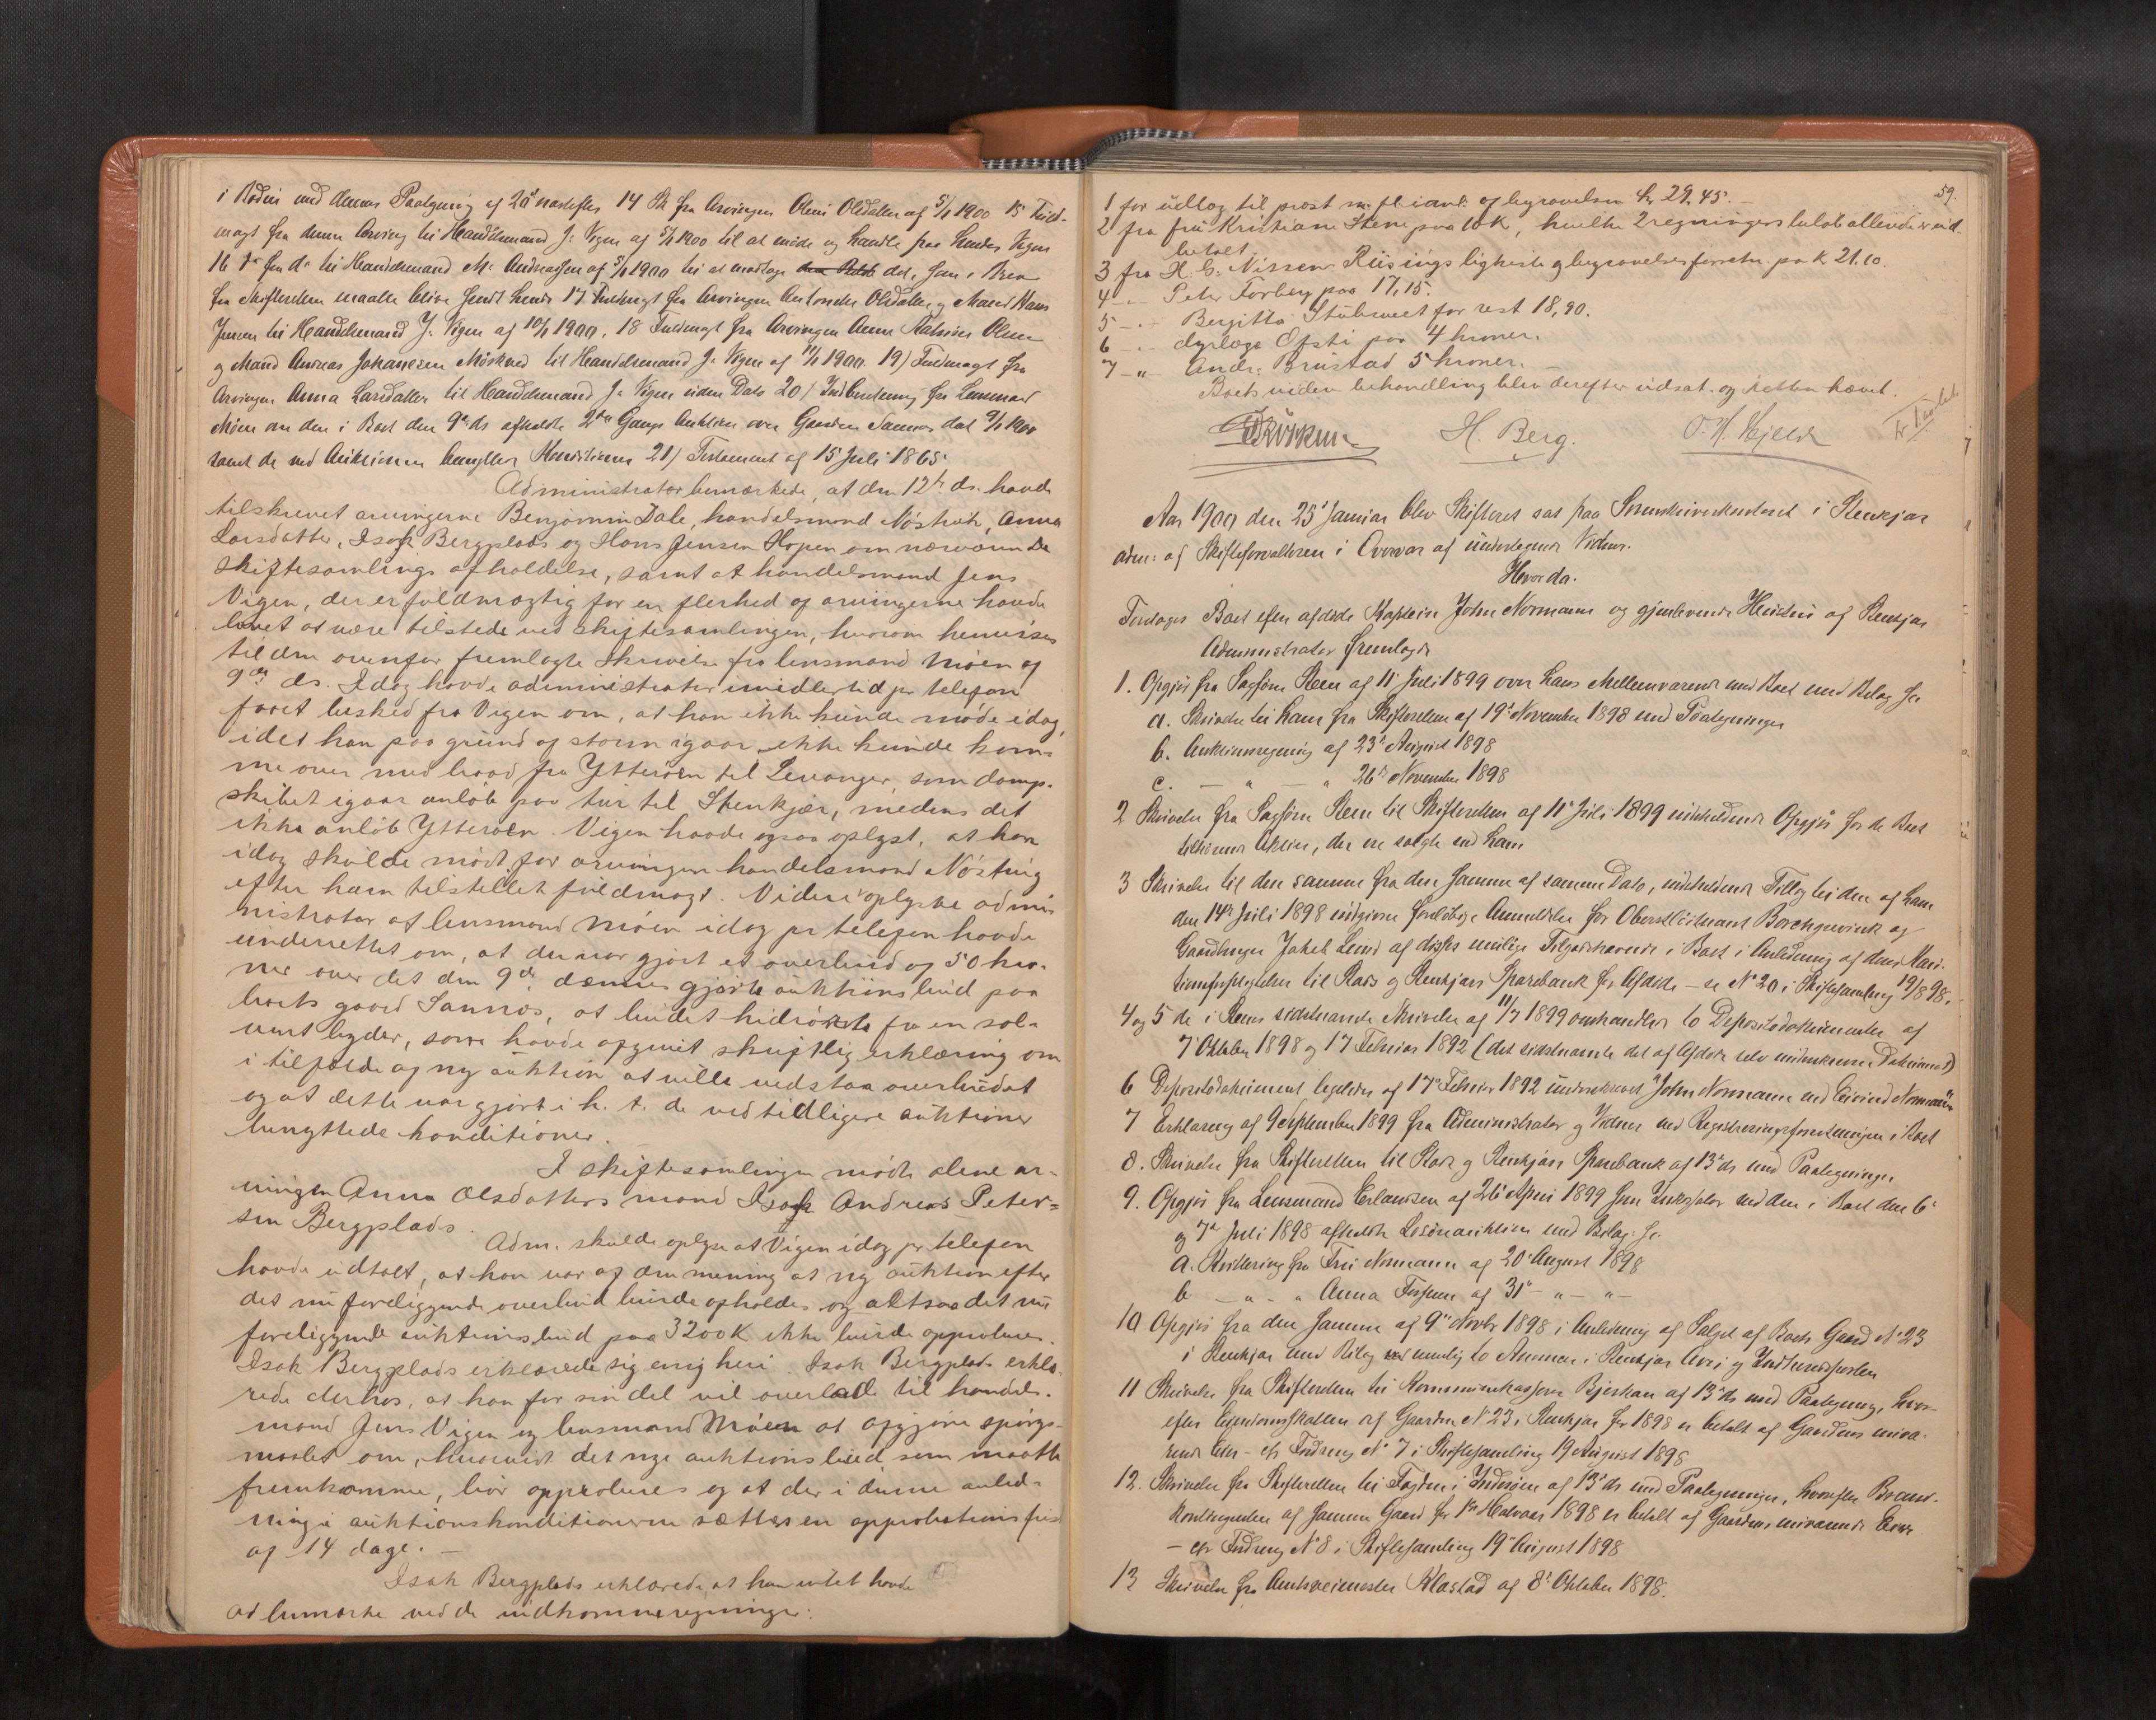 i Rødøi med dennes Paategning af 14 Sk fra Arvingen Oleni Olsdatter af 5/1 1900 15 Fuld-
magt fra denne Arving til Handelsmand J. Vigen af 5/1 1900 til at møde og handle paa hendes Vegne
16 do fra do til Handelsmand M. Andreassen af 5/1 1900 til at modtage det, som i Brev
fra Skifteretten maatte blive sendt hende 17 Fuldmagt fra Arvingen Antonette Olsdatter og Mand Hans
Jensen til Handelsmand J. Vigen af 10/1 1900, 18 Fuldmagt fra Arvingen Anne Olsen
og Mand Andreas Johannesen til Handelsmand J. Vigen af 11/1 1900 19) Fuldmagt fra
Arvingen Anna Larsdatter til Handelsmand J. Vigen uden Dato 20) Indberetning fra Lensmand
Moen om den i Boet den 9de ds afholdte 2den Gangs Auktion over Gaarden Sannes dat 9/1 1900
samt de ved Auktionen benyttede Konditioner 21) Testament af 15 Juli 1865.
Administrator bemærkede, at den 12te ds. havde
tilskrevet arvingerne Benjamin Dale, handelsmand Nøstvik, Anna
Larsdatter, Isak Bergplads og Hans Jensen Hopen om nærværende
skiftesamlings afholdelse, samt at handelsmand Jens
Vigen, der er fuldmægtig for en flerhed af arvingerne havde
lovet at være tilstede ved skiftesamlingen, hvorom henvises
til den ovenfor fremlagte skrivelse fra lensmand Moen af
9de ds. Idag havde administrator imidlertid pr telefon
faaet besked fra Vigen om, at han ikke kunde møde idag,
idet han paa grund af storm igaar ikke kunde kom-
me over med baad fra Ytterøen til Levanger, som damp-
skibet igaar anløb paa tur til Stenkjær, medens det
ikke anløb Ytterøen. Vigen havde ogsaa oplyst, at han
idag skulde mødt for arvingen handelsmand Nøstvig
efter ham tilstillet fuldmagt. Videre oplyste admi-
nistrator at lensmand Moen idag pr telefon havde
underrettet om, at der var gjort et overbud af 50 kro-
ner over det den 9de dennes gjorte auktionsbud paa
boets gaard Sannes, at budet hidrørte fra en sol-
vent byder, som havde afgivet skriftlig erklæring om
i tilfælde af ny auktion at ville vedstaa overbudet
og at dette var gjort i h. t. de ved tidligere auktioner
benyttede konditioner.
I skiftesamlingen mødte alene ar-
vingen Anna Olsdatters mand Isak Andreas Peter-
sen Bergplads.
Adm. skulde oplyse at Vigen idag pr telefon
havde udtalt, at han var af den mening at ny auktion efter
det nu foreliggende overbud burde afholdes og altsaa det nu
foreliggende auktionsbud paa 3200 K ikke burde approberes.
Isak Bergplads erklærede sig enig heri. Isak Bergplads erklæ-
rede derhos, at han for sin del vil overlade til handels-
mand Jens Vigen og lensmand Moen at afgjøre spørgs-
maalet om, hvorvidt det nye auktionsbud som maatte
fremkomme, bør approberes og at der i denne anled-
ning i auktionskonditionerne sættes en approbationsfrist
af 14 dage. —
Isak Bergplads erklærede, at han intet havde
at bemærke ved de indkomne regninger:
59.
1 for udlæg til prost m. fl. i anl. af begravelsen kr 29.45.
2 fra fru Kristiane Stene paa 10 K, hvilke 2 regningers beløb allerede er ud-
betalt.
3 fra H. G. Nissen Riisings ligkiste og begravelsesforretn. paa K 21.10.
4 - " - Peter Forberg paa 17,15.
5 - " - Bergitta Stubsveet for rest 18,90.
6 - " - dyrlæge Efsti paa 4 kroner.
7 - " - Andr. Brustad 5 kroner.
Boets videre behandling blev derefter udsat og retten hævet.
H. Berg. O. H. Hjelde
Aar 1900 den 25de Januar blev Skifteret sat paa Sorenskriverkontoret i Stenkjær
adm: af Skifteforvalteren i Overvær af undertegnede Vidner.
Hvorda.
Foretoges Boet efter afdøde Kaptein John Normann og gjenlevende Hustru af Stenkjær
Administrator fremlagde
1. Opgjør fra Sagfører Steen af 11 Juli 1899 over hans Mellemværende med Boet med Bilag sc.
a. Skrivelse til ham fra Skifteretten af 19de November 1898 med Paategninger
b. Auktionsregning af 23de August 1898
c. — " — " 26de November 1898
2 Skrivelse fra Sagfører Steen til Skifteretten af 11 Juli 1899 indeholdende Opgjør for de Boet
tilhørende Aktier, der ere solgte ved ham
3 Skrivelse til den samme fra den samme af samme Dato, indeholdende Tillæg til den af ham
den 14de Juli 1898 indgivne foreløbige Anmeldelse for Oberstløitnant Borchgrevink og
Gaardbruger Jakob Lund af disses mulige Tilgodehavende i Boet i Anledning af deres Kau-
tionsforpligtelse til Stods og Stenkjærs Sparebank for Afdøde — se No 20 i Skiftesamling 19/8 98.
4 og 5 de i Steens sidstnævnte Skrivelse af 11/7 1899 omhandlede to Depositodokumenter af
7 Oktober 1898 og 17 Februar 1892 (det sidstnævnte det af Afdøde selv underskrevne Dokument)
6 Depositodokument ligeledes af 17de Februar 1892 underskrevet "John Normann ved Eivind Normann"
7 Erklæring af 9 September 1899 fra Administrator og Vidner ved Registreringsforretningen i Boet
8. Skrivelse fra Skifteretten til Stods og Stenkjærs Sparebank af 13de ds med Paategninger
9. Opgjør fra Lensmand Erlandsen af 26de April 1899 som Inkassator ved den i Boet den 6te
og 7de Juli 1898 afholdte Løsøreauktion med Bilag: sc.
a. Kvittering fra Fru Normann af 20de August 1898
b — " — " Anna Fossum af 31te — " — " —
10 Opgjør fra den samme af 9de Novbr 1898 i Anledning af Salget af Boets Gaard No 23
i Stenkjær med Bilag nemlig to Annoncer i Stenkjær Avis og Indherredsposten
11 Skrivelse fra Skifteretten til Kommunekasserer Bjerkan af 13de ds med Paategning, hvor-
efter Eiendomsskatten af Gaarden No 23 i Stenkjær for 1898 er betalt af Gaardens nuvæ-
rende Eier — cfr Fordring No 7 i Skiftesamling 19 August 1898
12. Skrivelse fra Skifteretten til Fogden i Inderøen af 13de ds med Paategninger, hvorefter Brand-
kontingenten af samme Gaard for 1ste Halvaar 1898 er betalt af Gaardens nuværende Eier
— cfr Fordring No 8 i Skiftesamling 19de August 1898
13 Skrivelse fra Amtsveimester Klastad af 8de Oktober 1898.